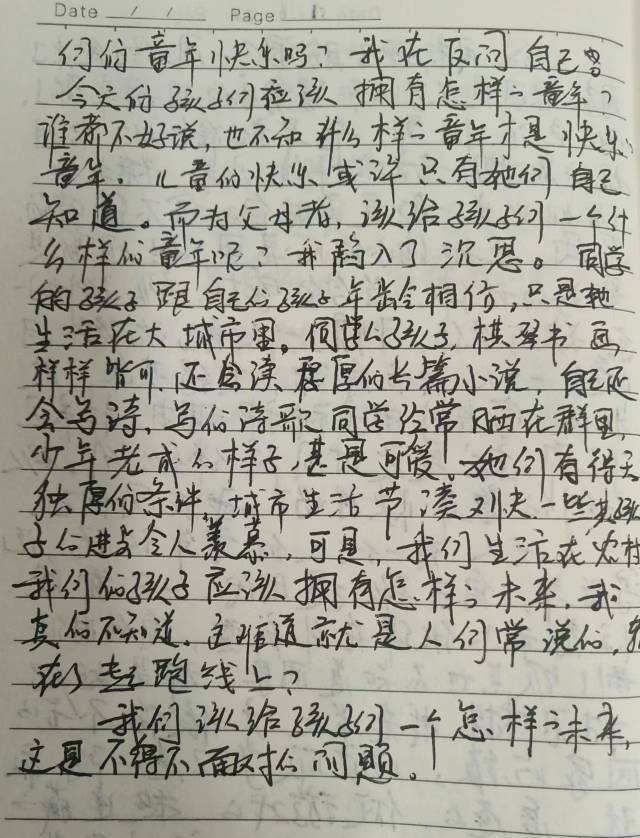 Date / / Page 1
们的童年快乐吗？我在反问自己。
今天的孩子们应该拥有怎样的童年？
谁都不好说，也不知什么样的童年才是快乐
童年。儿童的快乐或许只有她们自己
知道。而为父母者，该给孩子们一个什
么样的童年呢？我陷入了沉思。同学
的孩子跟自己的孩子年龄相仿，只是她
生活在大城市里。同学的孩子，棋琴书画
样样皆可，还会读厚厚的长篇小说，自己还
会写诗，写的诗歌同学经常晒在群里，
少年老成的样子，甚是可爱。她们有得天
独厚的条件，城市生活节凑对快一些，
子的进去令人羡慕，可是，我们生活在农村
我们的孩子应该拥有怎样的未来，我
真的不知道。这难道就是人们常说的，输
在了起跑线上？
我们该给孩子们一个怎样的未来，
这是不得不面对的问题。